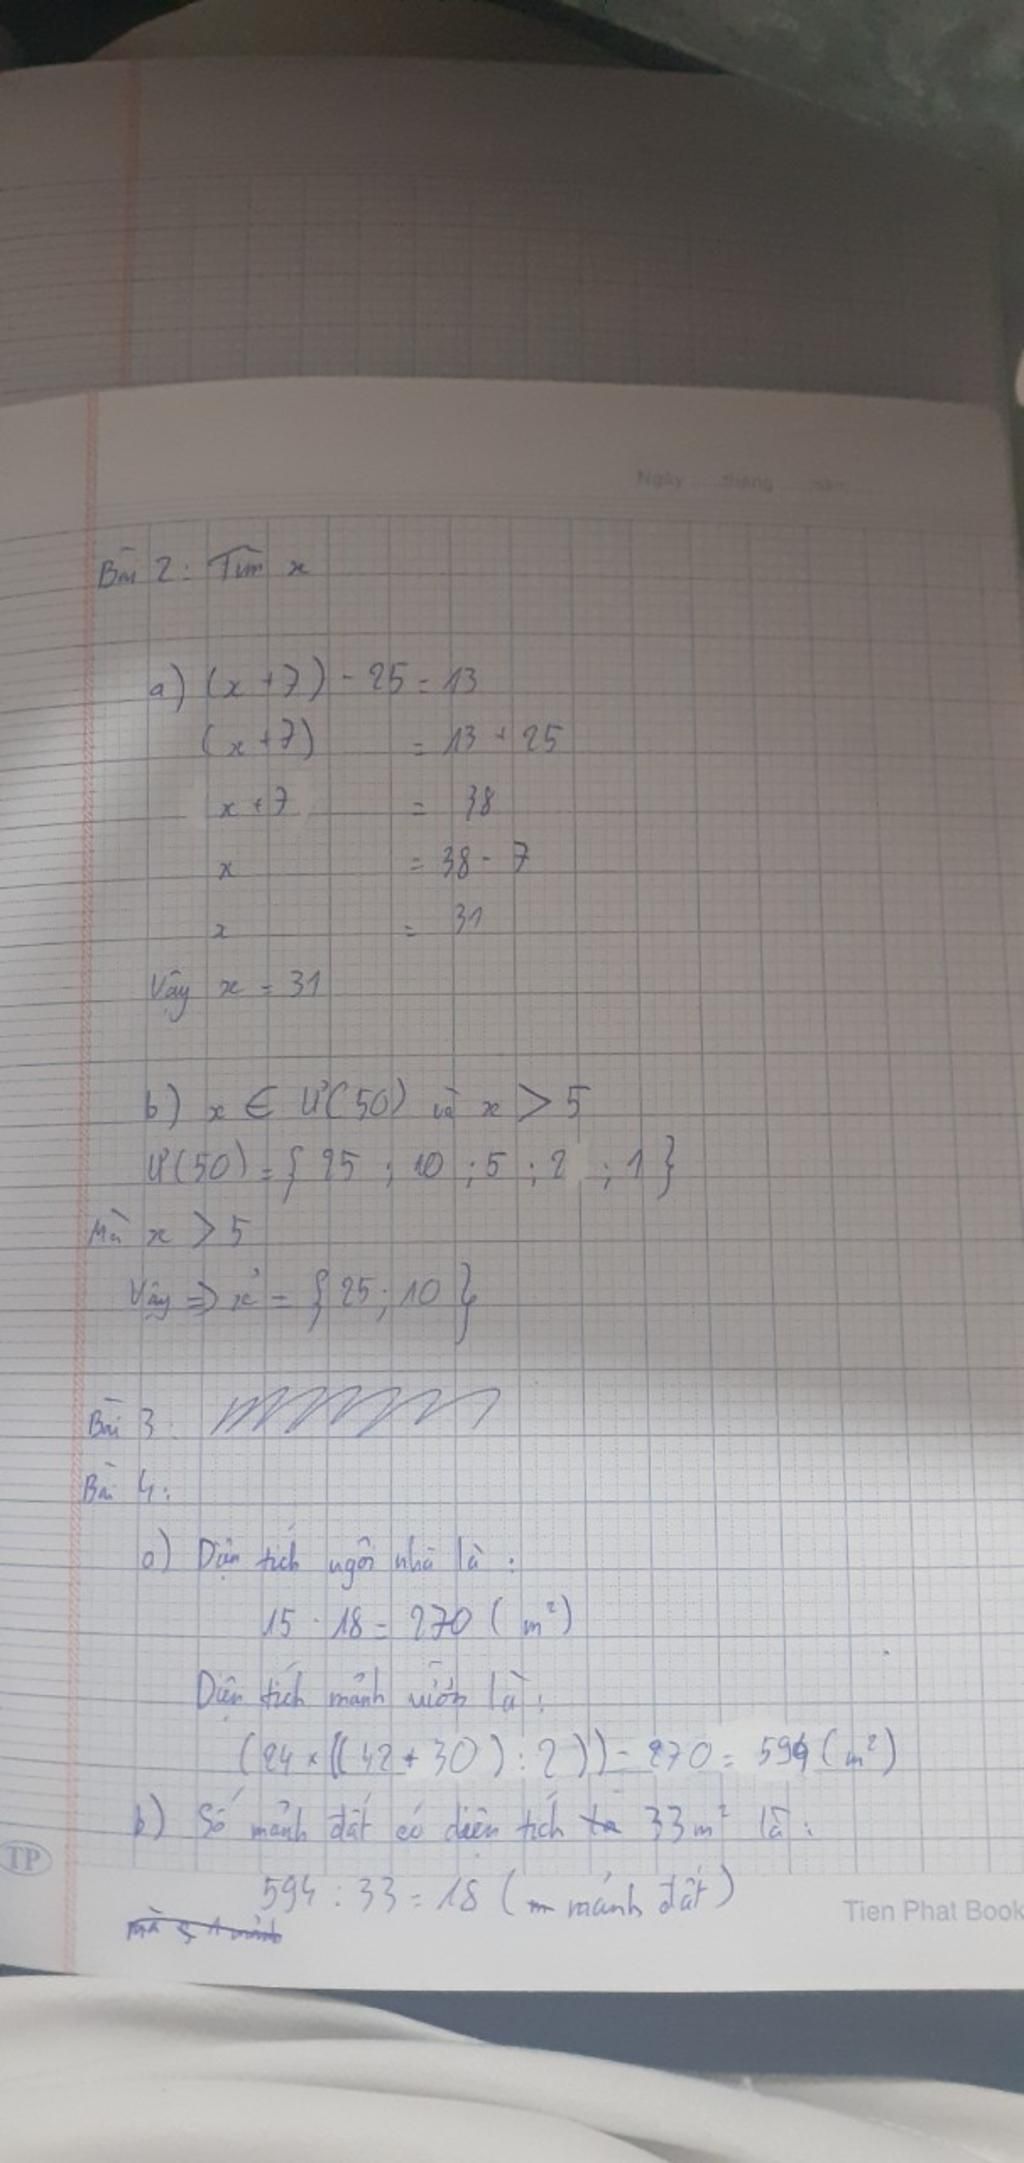 Ngày tháng năm
Bài 2: Tìm x
a) (x + 7) - 25 = 13
(x + 7) = 13 + 25
x + 7 = 38
x = 38 - 7
x = 31
Vậy x = 31
b) x ∈ Ư(50) và x > 5
Ư(50) = { 25 ; 10 ; 5 ; 2 ; 1 }
Mà x > 5
Vậy => x = { 25 ; 10 }
Bài 3:
Bài 4:
a) Diện tích ngôi nhà là :
15 . 18 = 270 ( m²)
Diện tích mảnh vườn là :
(24 × ((42 + 30) : 2)) - 270 = 594 ( m²)
b) Số mảnh đất có diện tích 33 m² là :
594 : 33 = 18 ( mảnh đất )
TP
Tien Phat Book